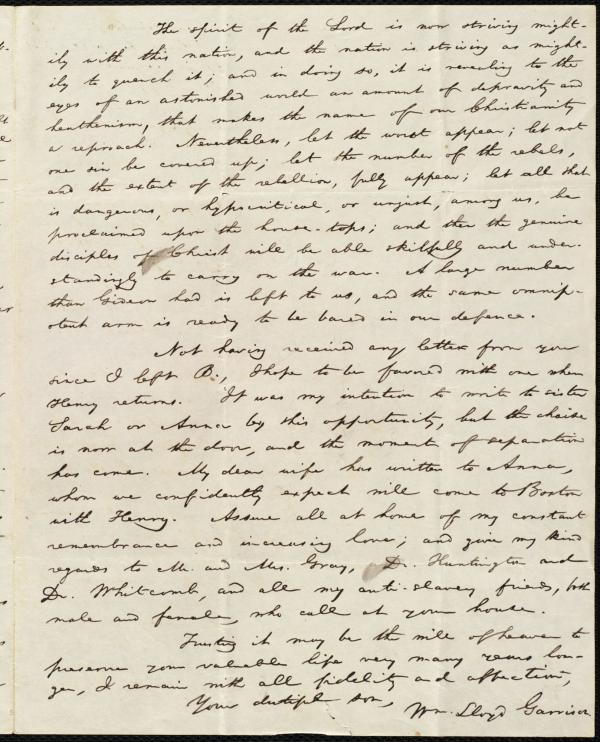 The spirit of the Lord is now striving might-
ily with this nation, and the nation is striving as might-
ily to quench it; and in doing so, it is revealing to the
eyes of an astonished world an amount of depravity and
heathenism, that makes the name of our Christianity
a reproach. Nevertheless, let the worst appear; let not
one sin be covered up; let the number of the rebels,
and the extent of the rebellion, fully appear; let all that
is dangerous, or hypocritical, or unjust, among us, be
proclaimed upon the house-tops; and then the genuine
disciples of Christ will be able skilfully and under-
standingly to carry on the war. A large number
than Gideon had is left to us, and the same omnip-
otent arm is ready to be bared in our defence.
Not having received any letter from you
since I left B., I hope to be favored with one when
Henry returns. It was my intention to write to sister
Sarah or Anna by this opportunity, but the chaise
is now at the door, and the moment of separation
has come. My dear wife has written to Anna,
whom we confidently expect will come to Boston
with Henry. Assure all at home of my constant
remembrance and increasing love; and give my kind
regards to Mr. and Mrs. Gray, Dr. Huntington and
Dr. Whitcomb, and all my anti-slavery friends, both
male and female, who call at your house.
Trusting it may be the will of heaven to
preserve your valuable life very many years lon-
ger, I remain with all fidelity and affection,
Your dutiful son,
Wm. Lloyd Garrison